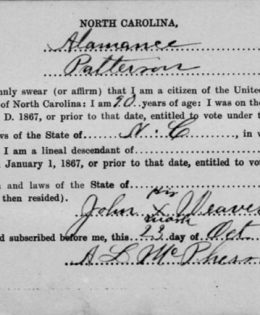 NORTH CAROLINA,
Alamance
Patterson
nnly swear (or affirm) that I am a citizen of the United
of North Carolina: I am 20 years of age: I was on the
D. 1867, or prior to that date, entitled to vote under
ws of the State of N. C , in w
I am a lineal descendant of
January 1, 1867, or prior to that date, entitled to vot
n and laws of the State of
then resided).
his
John X Weaver
mark
nd subscribed before me, this 23 day of Oct
A L McPherso